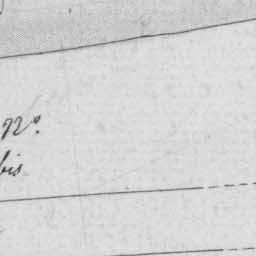 N°.
bis